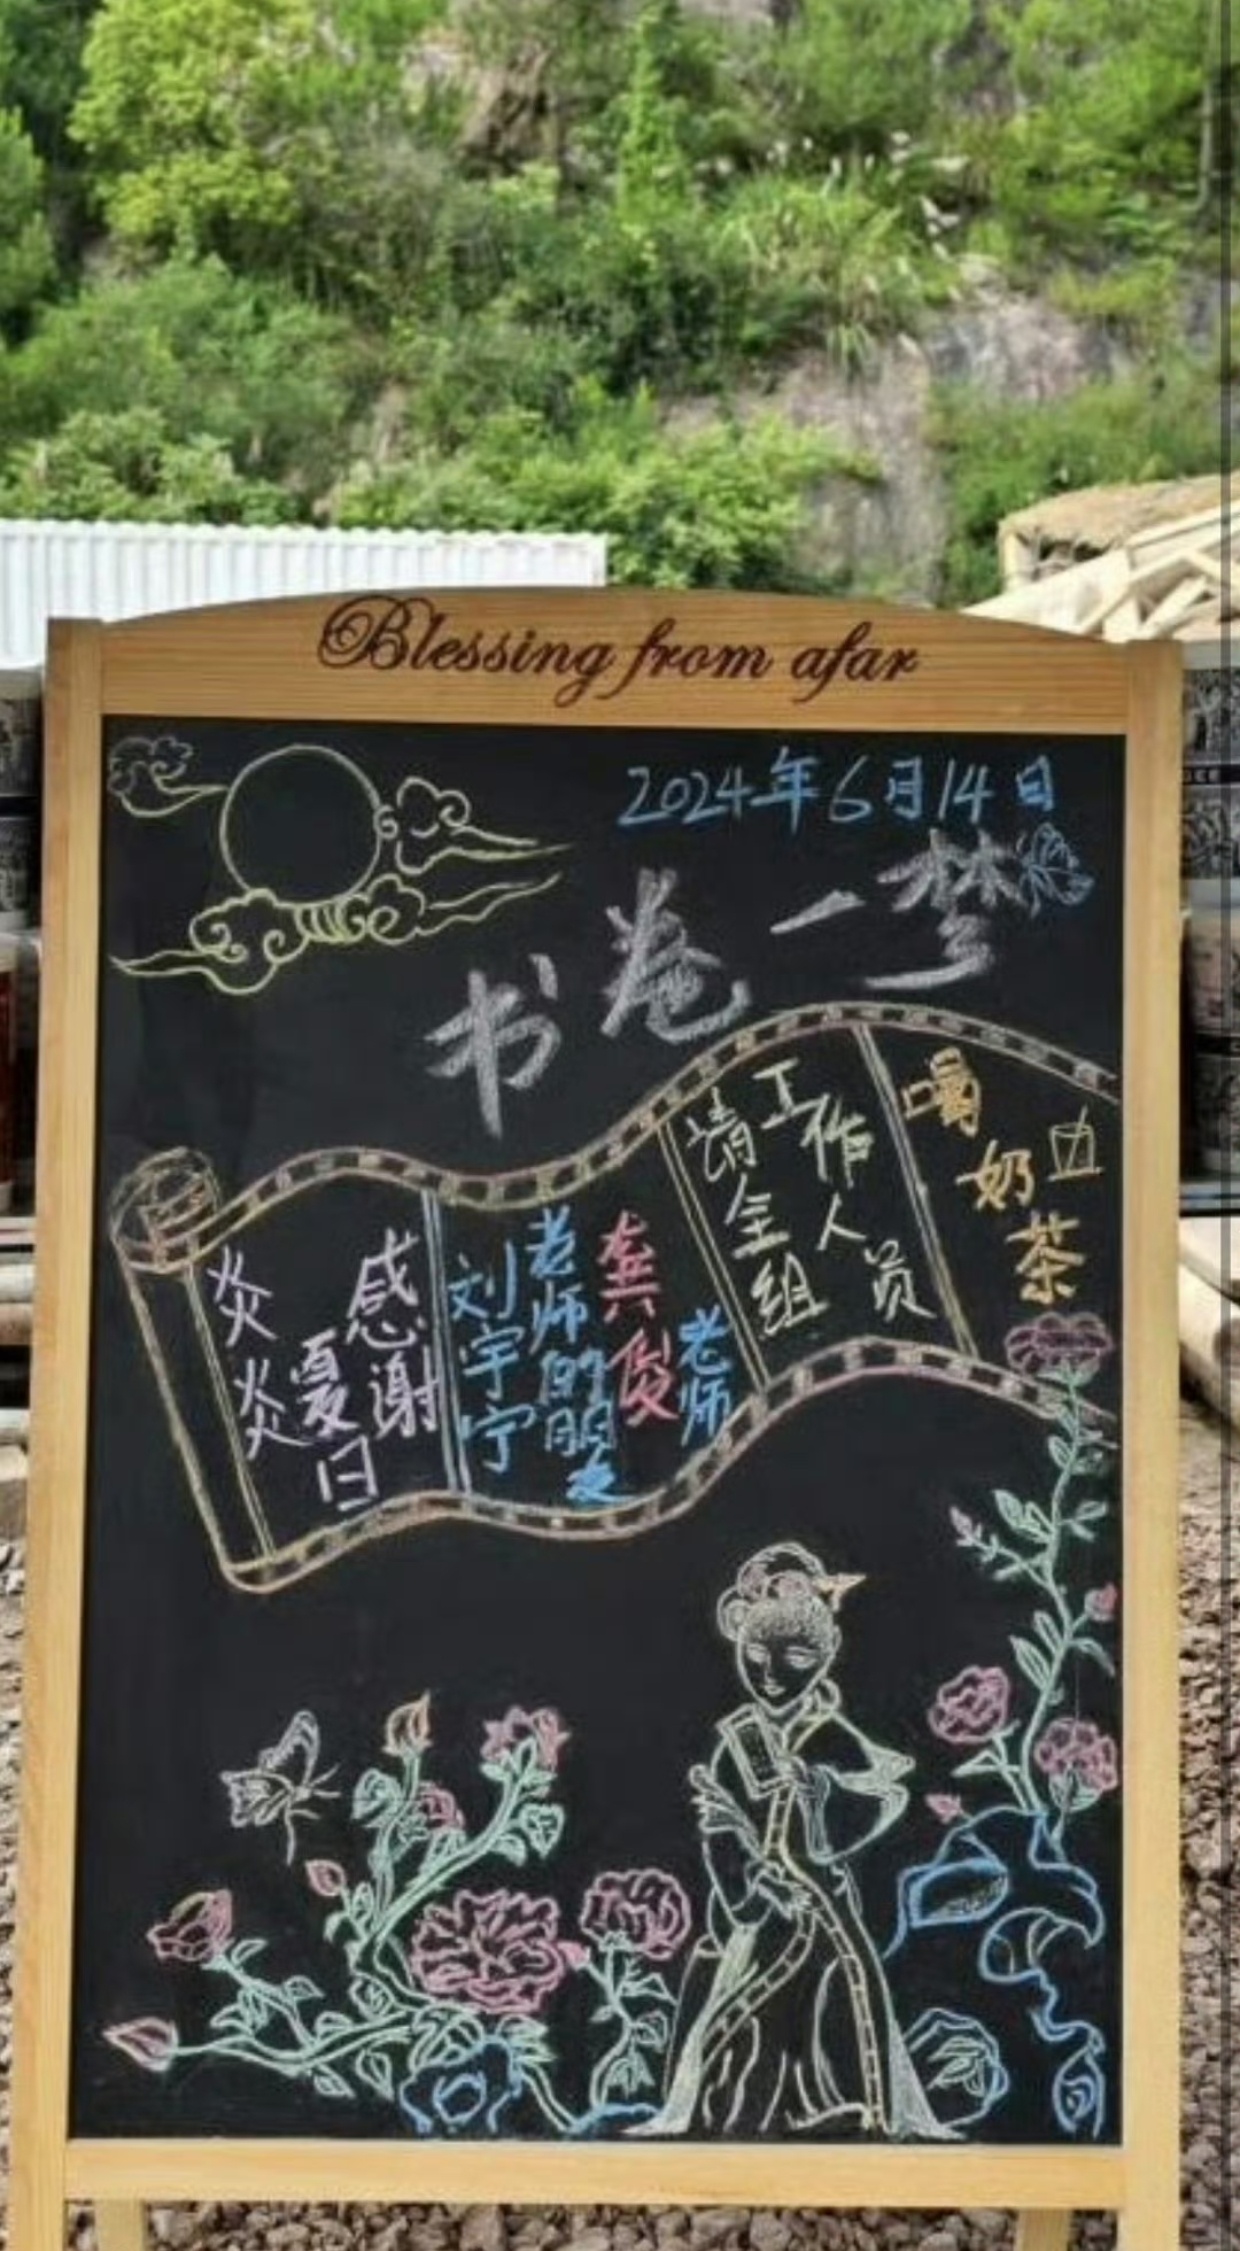 Blessing from afar
2024年6月14日
书卷一梦
炎炎
夏日
感谢
刘宇宁
老师的朋友
龚俊
老师
请全组
工作人员
喝
奶茶